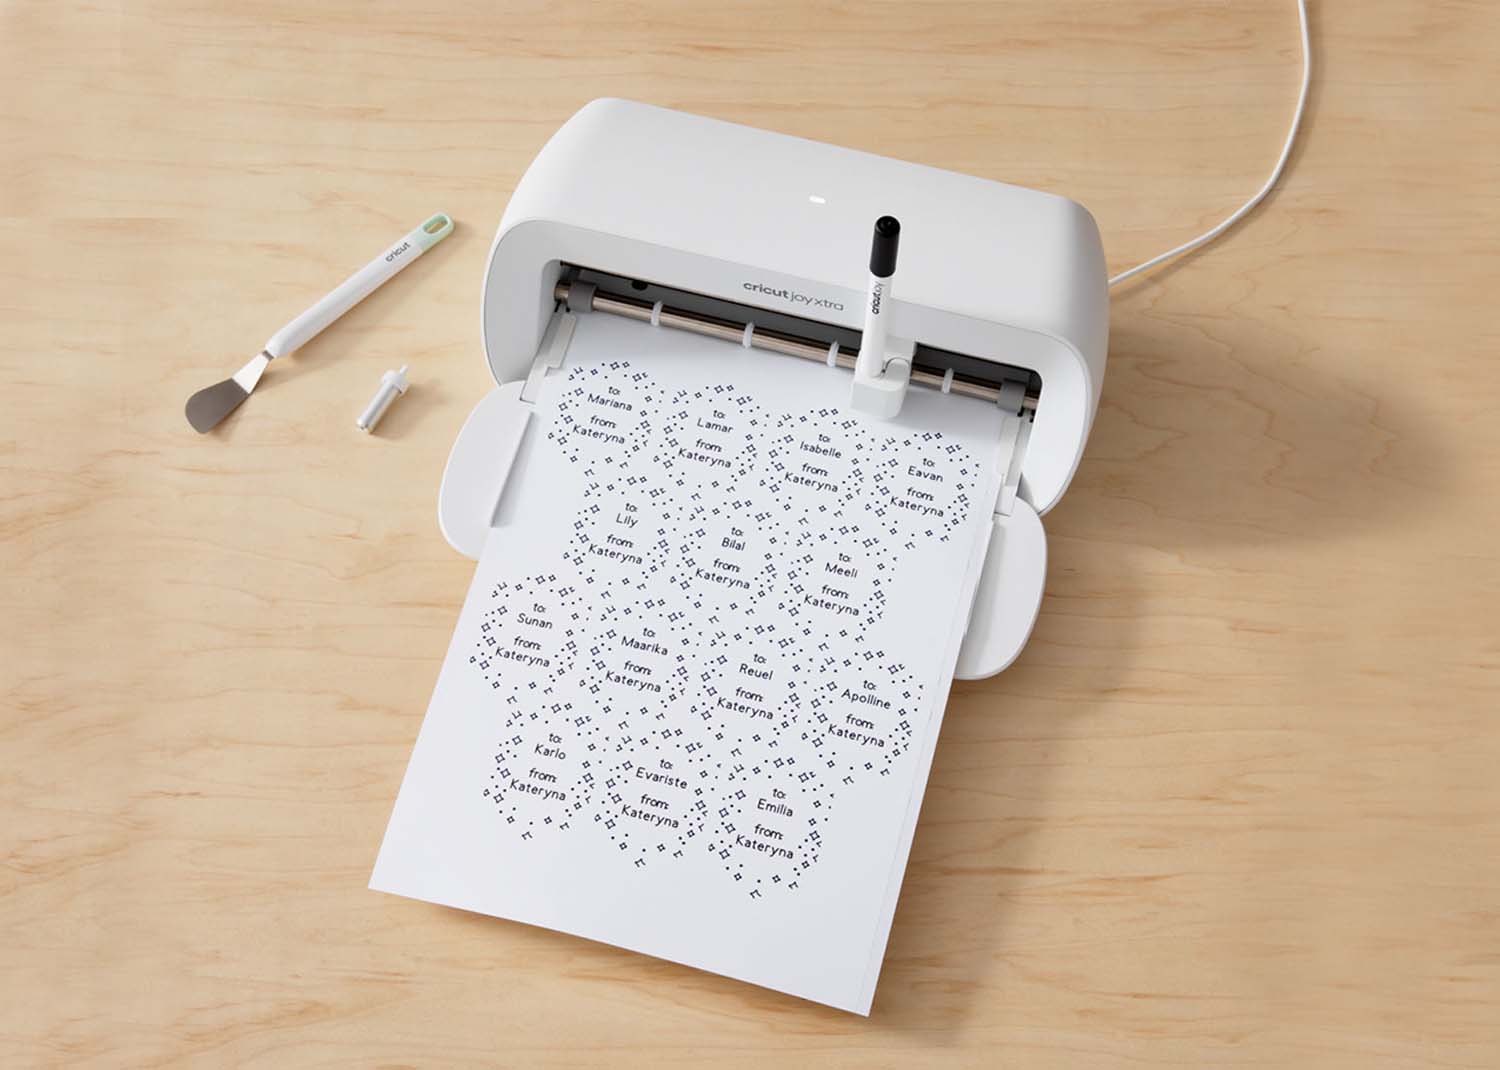 cricut
cricut joy xtra
cricut
to:
Mariana
from:
Kateryna
to:
Lamar
from:
Kateryna
to:
Isabelle
from:
Kateryna
to:
Eavan
from:
Kateryna
to:
Lily
from:
Kateryna
to:
Bilal
from:
Kateryna
to:
Meeli
from:
Kateryna
to:
Sunan
from:
Kateryna
to:
Maarika
from:
Kateryna
to:
Reuel
from:
Kateryna
to:
Apolline
from:
Kateryna
to:
Karlo
from:
Kateryna
to:
Evariste
from:
Kateryna
to:
Emilia
from:
Kateryna